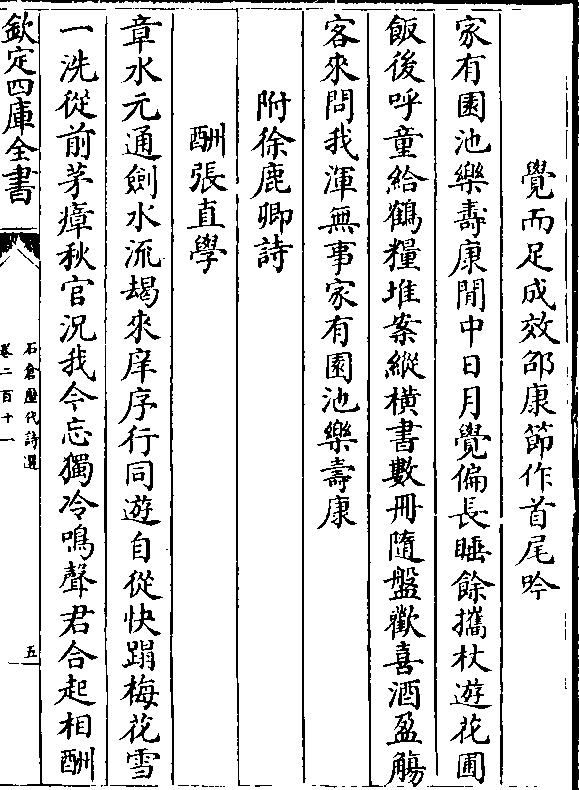 覺而足成效邵康節作首尾吟
家有園池樂壽康閒中日月覺偏長睡餘攜杖遊花圃
飯後呼童給鶴糧堆案縱橫書數冊隨盤歡喜酒盈觴
客來問我渾無事家有園池樂壽康
附徐鹿卿詩
酬張直學
章水元通劍水流朅來庠序行同遊自從快蹋梅花雪
一洗從前茅瘴秋官況我今忘獨冷鳴聲君合起相酬
欽定四庫全書
石倉歷代詩選
卷二百十一
五